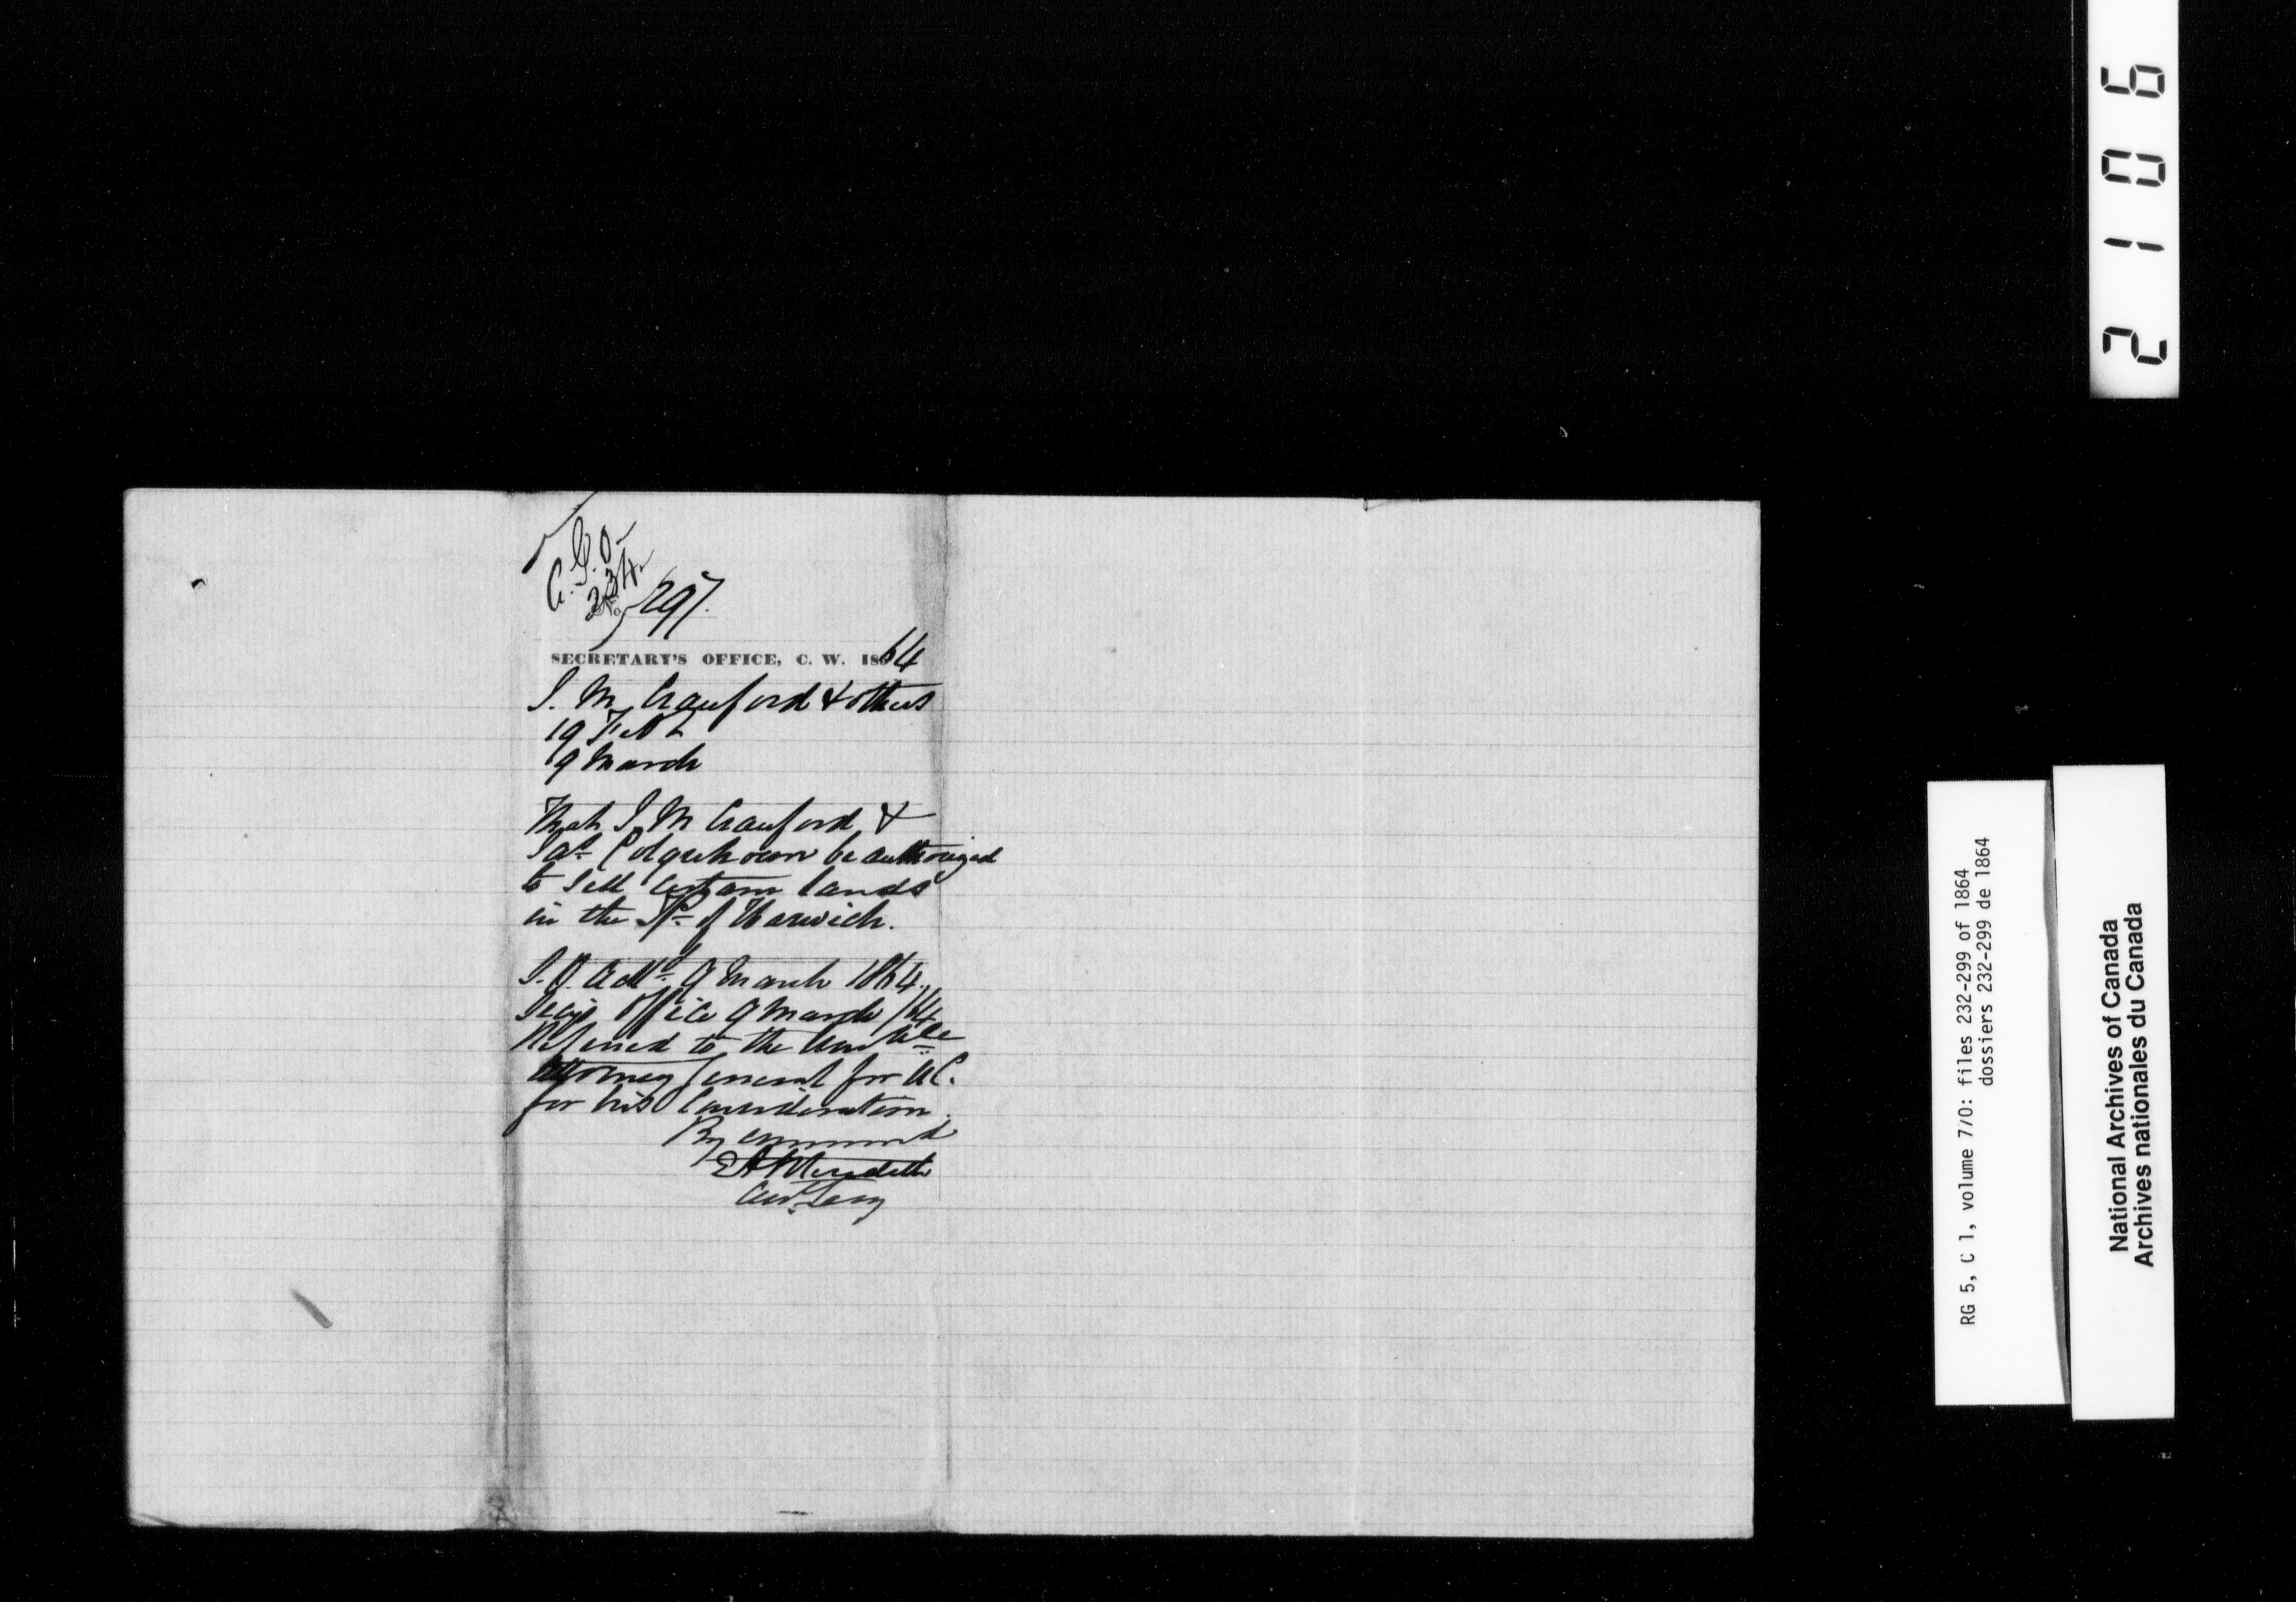 C. S. O.
234
No 297.
SECRETARY'S OFFICE, C. W. 1864
J. M. Crauford & others
19 Feb
9 March
That J. M Crauford &
Jas Colquhoun be authorized
to sell certain lands
in the Tp of Harwich.
9 March 1864.
Secys Office 9 March /64
Referred to the Honble
Attorney General for U.C.
for his Consideration.
By command
E A Meredith
Asst. Secy
2106
RG 5, C 1, volume 770: files 232-299 of 1864
dossiers 232-299 de 1864
National Archives of Canada
Archives nationales du Canada